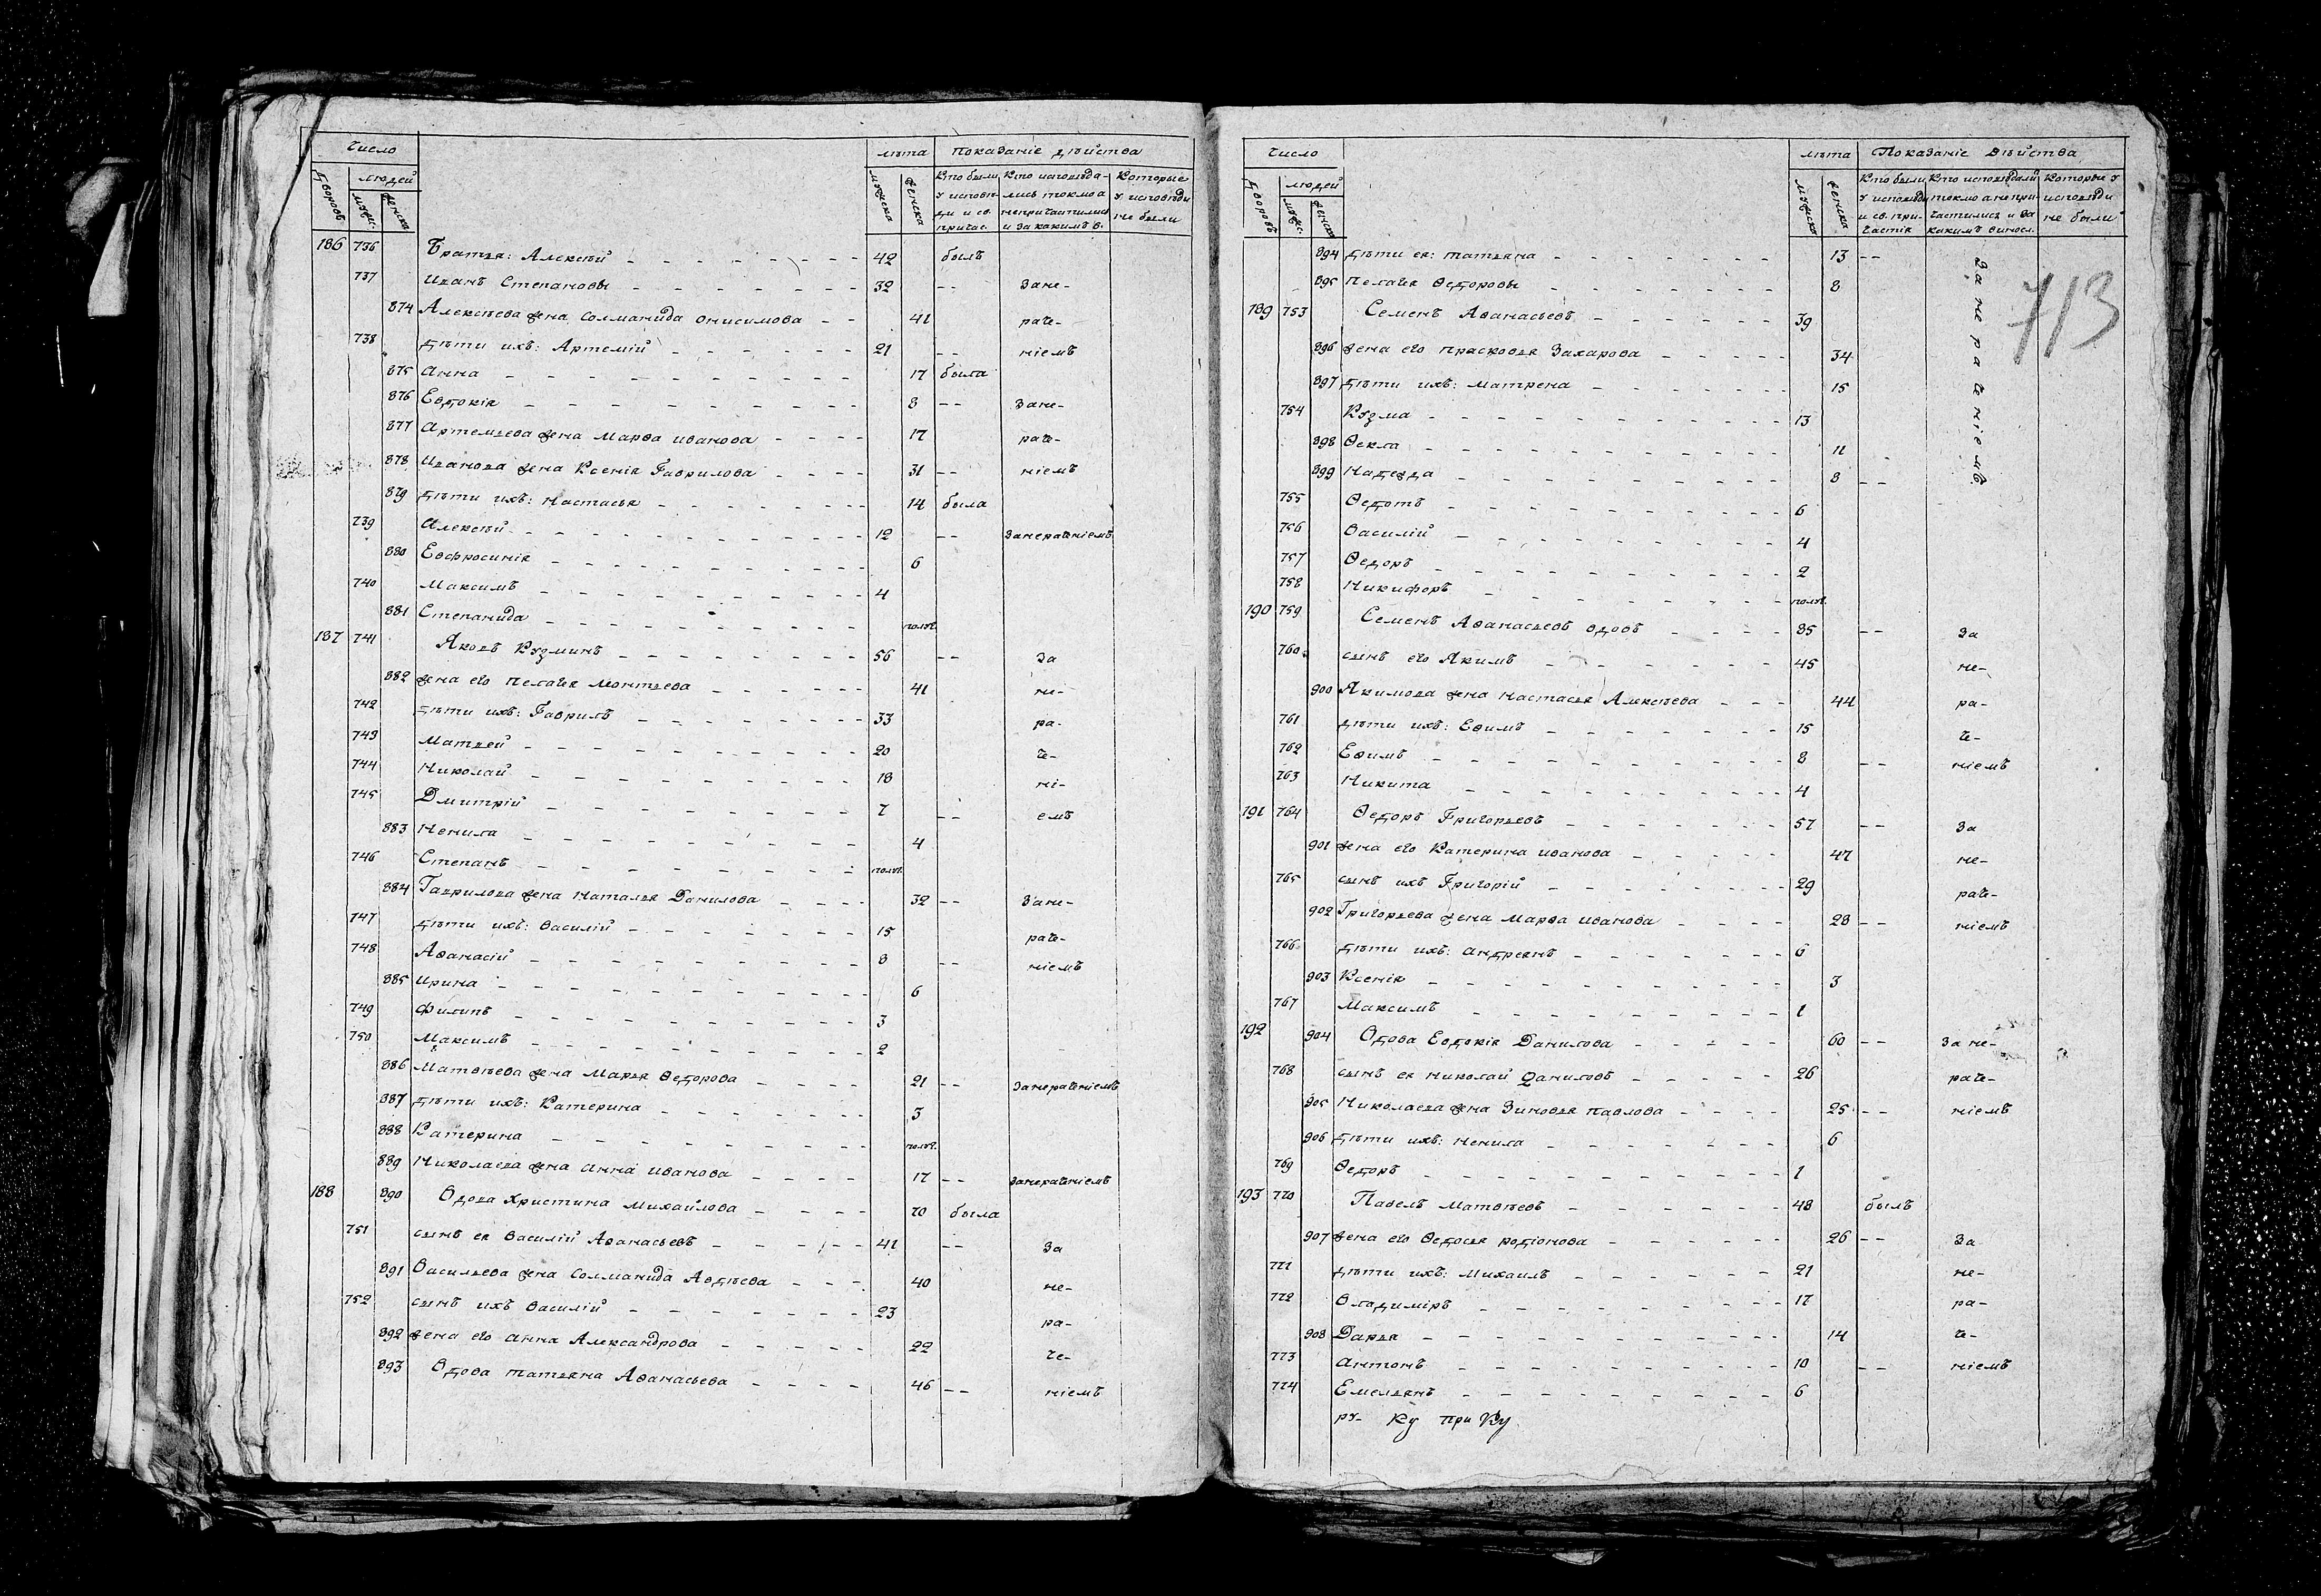 Число
лѣта Показаніе дѣйства
Дворовъ
людей
мужес.
женска
мужеска
женска
Кто были у исповѣди и св. причас.
Кто исповѣдались токмо а непричастились и за какимъ в.
Которые у исповѣди не были
186 736 Братья: Алексѣй 42 былъ
737 Иванъ Степановы 32 -- Зане-
874 Алексѣева жена Соломанида Онисимова 41 раче-
738 дѣти ихъ: Артемій 21 -- ніемъ
875 Анна 17 была
876 Евдокія 8 -- Зане-
877 Артемьева жена Марѳа Иванова 17 раче-
878 Иванова жена Ксенія Гаврилова 31 -- ніемъ
879 дѣти ихъ: Настасья 14 была
739 Алексѣй 12 -- Занераченіемъ
880 Евфросинія 6
740 Максимъ 4
881 Степанида полг.
187 741 Яковъ Кузминъ 56 -- За
882 жена его Пелагея Леонтьева 41 не-
742 дѣти ихъ: Гаврилъ 33 ра-
743 Матвей 20 че-
744 Николай 18 ні-
745 Дмитрій 7 -- емъ
883 Ненила 4
746 Степанъ полг.
884 Гаврилова жена Наталья Данилова 32 -- Зане-
747 дѣти ихъ: Василій 15 раче-
748 Аѳанасій 8 -- ніемъ
885 Ирина 6
749 Филипъ 3
750 Максимъ 2
886 Матвѣева жена Марья Ѳедорова 21 -- Занераченіемъ
887 дѣти ихъ: Катерина 3
888 Катерина полг.
889 Николаева жена Анна Иванова 17 -- Занераченіемъ
188 890 Вдова Христина Михайлова 70 была
751 сынъ ея Василій Аѳанасьевъ 41 -- За
891 Васильева жена Соломанида Авдѣева 40 не-
752 сынъ ихъ Василій 23 ра-
892 жена его Анна Александрова 22 че-
893 Вдова Татьяна Аѳанасьева 46 -- ніемъ
Число
лѣта Показаніе дѣйства
Дворовъ
людей
мужес.
женска
мужеска
женска
Кто были у исповѣди и св. причастія
Кто исповѣдались токмо а непричастились и за какимъ винос.
Которые у исповѣди не были
713
894 дѣти ея: Татьяна 13 -- Занераченіемъ
895 Пелагея Ѳедоровы 8
189 753 Семенъ Аѳанасьевъ 39
896 жена его Прасковья Захарова 34
897 дѣти ихъ: Матрена 15
754 Кузма 13
898 Ѳекла 11
899 Надежда 8 --
755 Ѳедотъ 6
756 Василій 4
757 Ѳедоръ 2
758 Никифоръ полг.
190 759 Семенъ Аѳанасьевъ вдовъ 85 -- За
760 сынъ его Якимъ 45 не-
900 Якимова жена Настасья Алексѣева 44 ра-
761 дѣти ихъ: Ефимъ 15 че-
762 Ефимъ 8 -- ніемъ
763 Никита 4
191 764 Ѳедоръ Григорьевъ 57 -- За
901 жена его Катерина Иванова 47 не-
765 сынъ ихъ Григорій 29 раче-
902 Григорьева жена Марѳа Иванова 28 -- ніемъ
766 дѣти ихъ: Андреянъ 6
903 Ксенія 3
767 Максимъ 1
192 904 Вдова Евдокія Данилова 60 -- Зане-
768 сынъ ея Николай Даниловъ 26 раче-
905 Николаева жена Зиновья Павлова 25 -- ніемъ
906 дѣти ихъ: Ненила 6
769 Ѳедоръ 1
193 770 Павелъ Матвѣевъ 48 былъ
907 жена его Ѳедосья Родіонова 26 -- За
771 дѣти ихъ: Михаилъ 21 не-
772 Владиміръ 17 ра-
908 Дарья 14 че-
773 Антонъ 10 -- ніемъ
774 Емельянъ 6
ру- ку при Ку